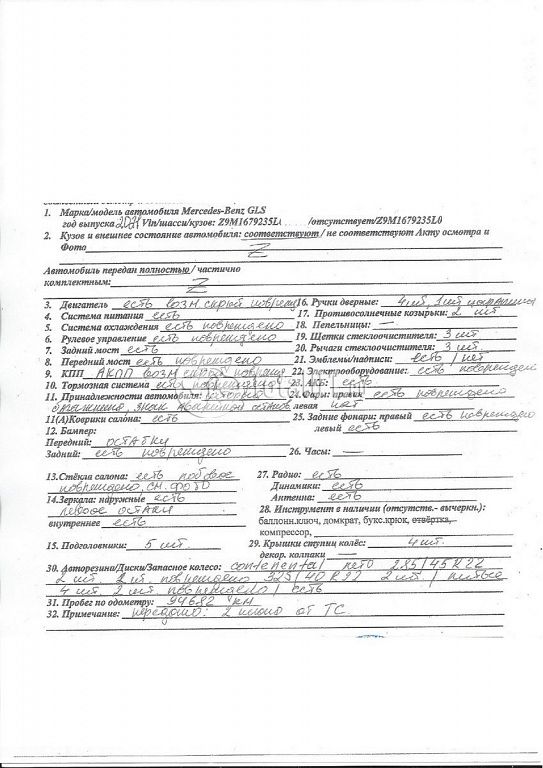 1. Марка/модель автомобиля Mercedes-Benz GLS
год выпуска 2021 Vin/шасси/кузов: Z9M1679235L /отсутствует/Z9M1679235L0
2. Кузов и внешнее состояние автомобиля: соответствуют / не соответствуют Акту осмотра и
Фото Z
Автомобиль передан полностью / частично
комплектным: Z
3. Двигатель есть возм скрыт поврежд
4. Система питания есть
5. Система охлаждения есть повреждено
6. Рулевое управление есть повреждено
7. Задний мост есть
8. Передний мост есть повреждено
9. КПП АКПП возм скрыт
10. Тормозная система есть повреждено
11. Принадлежности автомобиля:
знак аварийной останов
11(А)Коврики салона: есть
12. Бампер:
Передний: остатки
Задний: есть повреждено
13.Стёкла салона: есть лобовое
повреждено, см. фото
14.Зеркала: наружные есть
левое остатки
внутреннее есть
15. Подголовники: 5 шт.
16. Ручки дверные: 4 шт, 1 шт
17. Противосолнечные козырьки: 2 шт
18. Пепельницы: —
19. Щетки стеклоочистителя: 3 шт
20. Рычаги стеклоочистителя: 3 шт.
21. Эмблемы/надписи: есть / нет
22. Электрооборудование: есть поврежден
23. АКБ: есть
24.Фары: правая есть повреждено
левая нет
25. Задние фонари: правый есть повреждено
левый есть
26. Часы: —
27. Радио: есть
Динамики: есть
Антенна: есть
28. Инструмент в наличии (отсутств.- вычеркн.):
баллонн.ключ, домкрат, букс.крюк, отвёртка,
компрессор,
29. Крышки ступиц колёс: 4 шт.
декор. колпаки —
30. Авторезина/Диски/Запасное колесо: continental лето 285/45 R22
2 шт. 1 шт. повреждено 325/40 R22 2 шт / литые
4 шт. 2 шт. повреждено / есть
31. Пробег по одометру: 94682 км
32. Примечание: передано: 2 ключа от ТС.